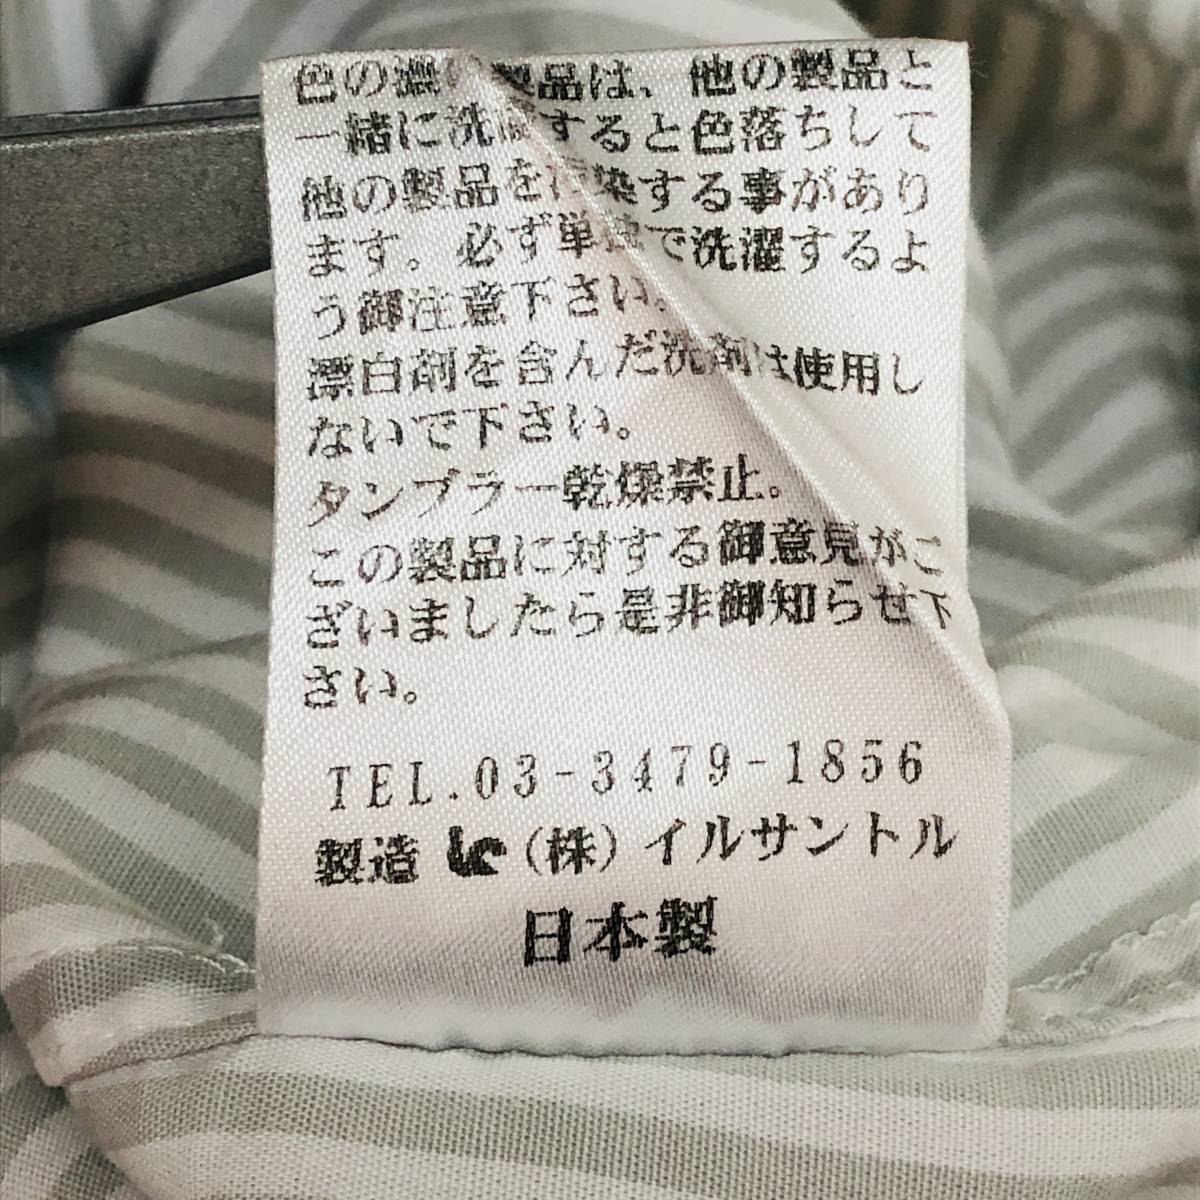 色の濃い製品は、他の製品と
一緒に洗濯すると色落ちして
他の製品を汚染する事があり
ます。必ず単独で洗濯するよ
う御注意下さい。
漂白剤を含んだ洗剤は使用し
ないで下さい。
タンブラー乾燥禁止。
この製品に対する御意見がご
ざいましたら是非御知らせ下
さい。
TEL.03-3479-1856
製造 (株)イルサントル
日本製